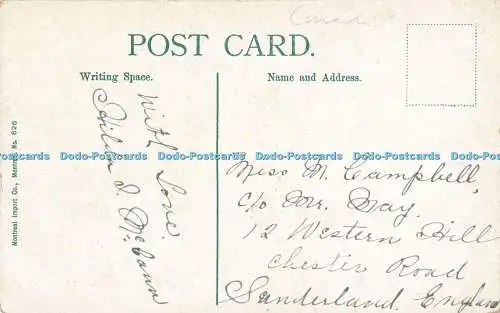 Canada
POST CARD.
Writing Space.
Name and Address.
With Love.
I. McCann
Miss M. Campbell,
c/o Mr. May.
12 Western Hill
Chester Road
Sunderland. England
Montreal Import Co., Montreal No. 626
Dodo-Postcards Dodo-Postcards Dodo-Postcards Dodo-Postcards Dodo-Postcards